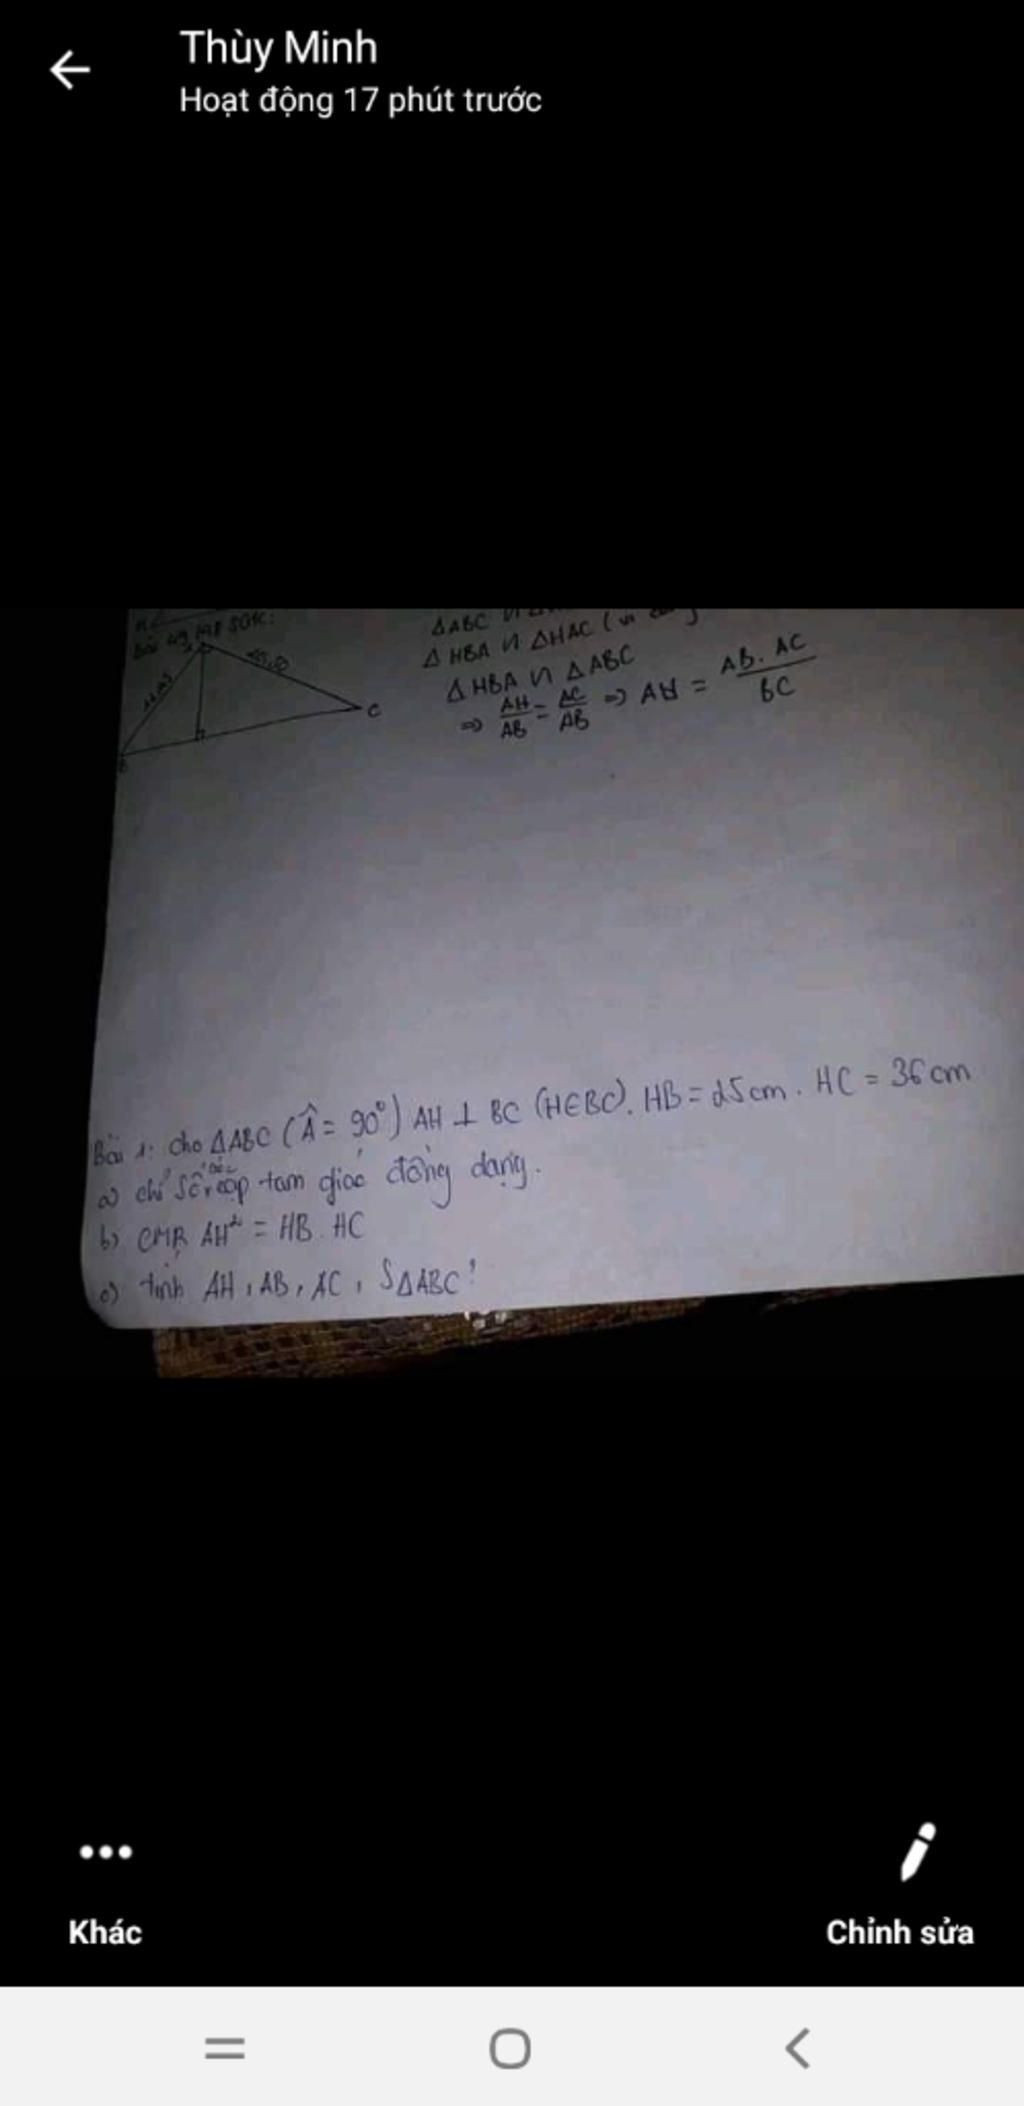 Thùy Minh
Hoạt động 17 phút trước
Bài 49 SGK:
ΔABC
Δ HBA ᔕ ΔHAC (vì
Δ HBA ᔕ ΔABC
⇒ AH/AB = AC/AB ⇒ AH = AB. AC/BC
B C
Bài 1: cho ΔABC (Â = 90°) AH ⊥ BC (H∈BC). HB = 25cm. HC = 36cm
a) chỉ số các cặp tam giác đồng dạng.
b) CMR AH² = HB. HC
c) tính AH, AB, AC, SΔABC!
Khác
Chỉnh sửa